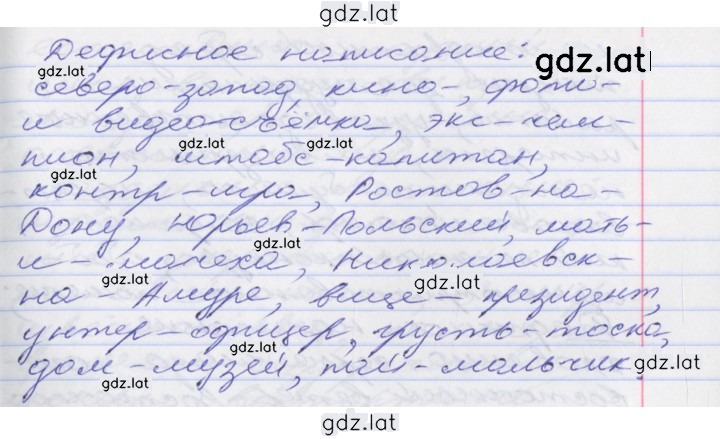 gdz.lat
Дефисное написание:
gdz.lat
gdz.lat
северо-запад, кино-, фото-
и видео-съёмка, экс-чем-
gdz.lat
gdz.lat
пион, штабс-капитан,
gdz.lat
контр-игра, Ростов-на-
Дону, Юрьев-Польский, мать-
gdz.lat
и-мачеха, Николаевск-
gdz.lat
gdz.lat
на-Амуре, вице-президент,
унтер-офицер, грусть-тоска,
gdz.lat
gdz.lat
дом-музей, пай-мальчик.
gdz.lat
gdz.lat